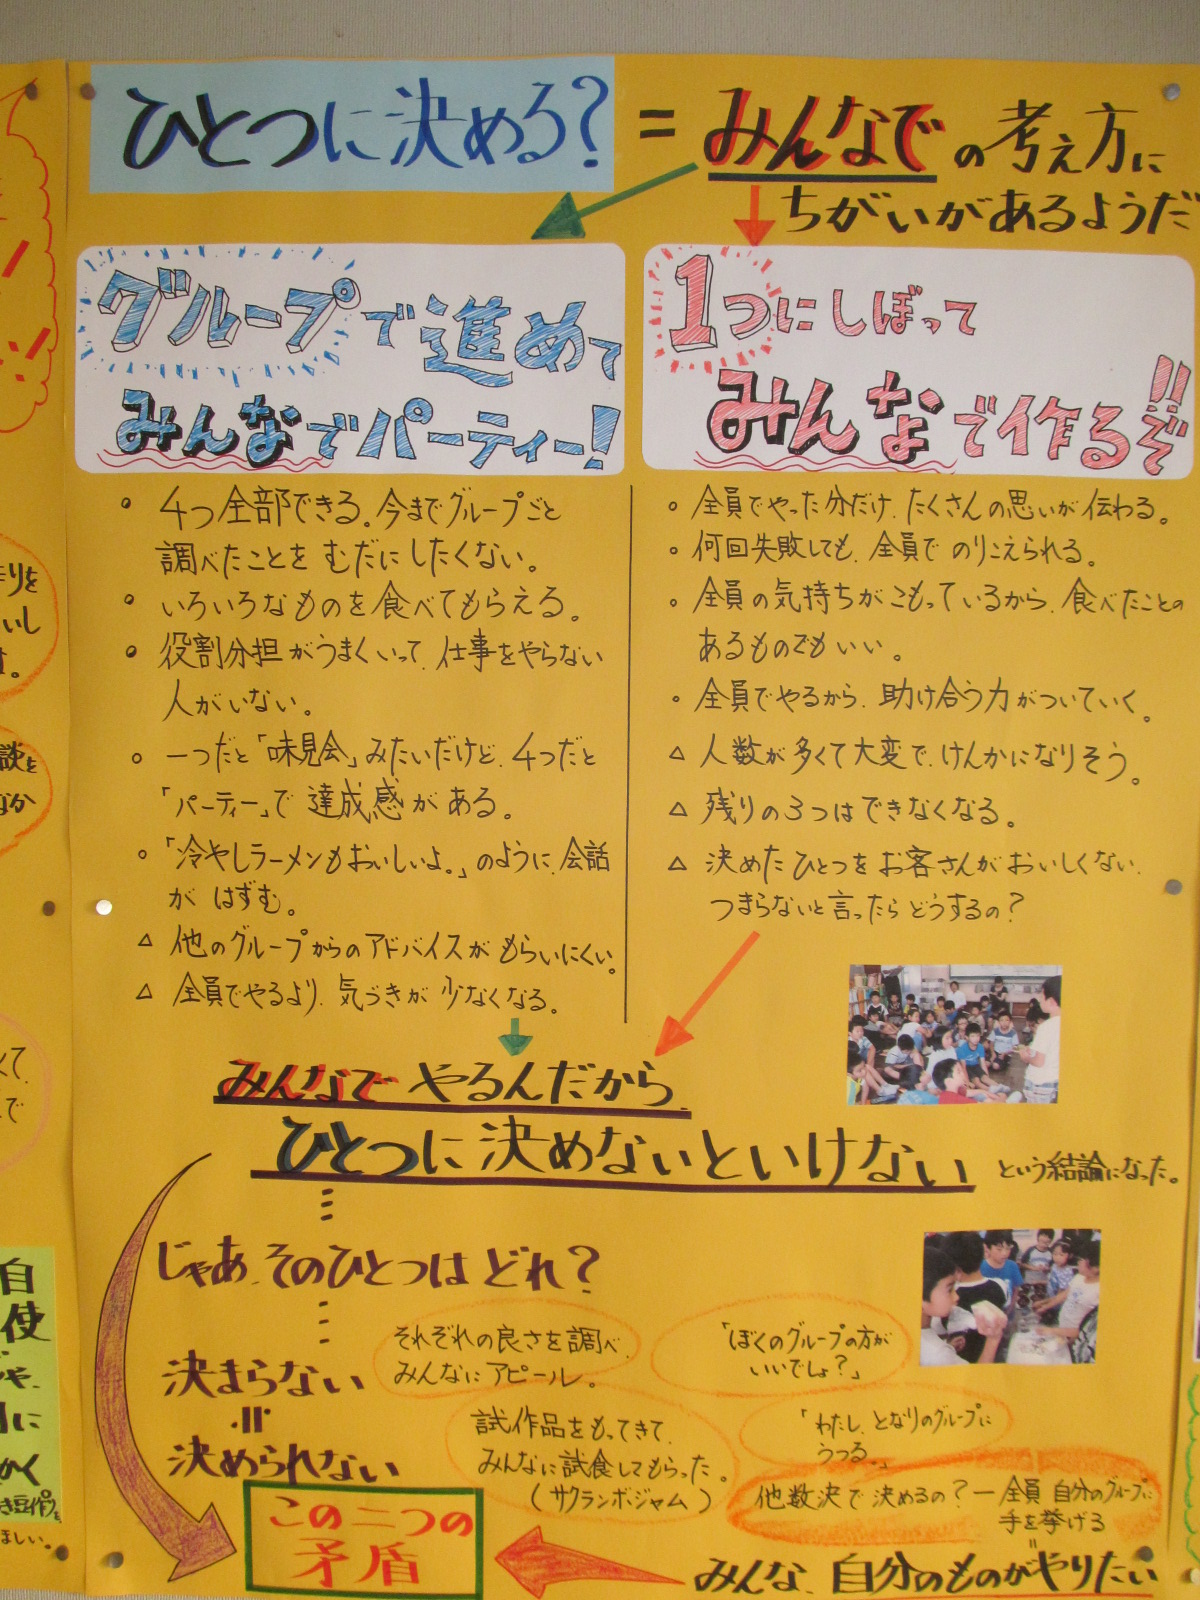 ひとつに決める？ = みんなでの考え方に
ちがいがあるようだ
グループで進めて
みんなでパーティー！
・4つ全部できる。今までグループごと
調べたことをむだにしたくない。
・いろいろなものを食べてもらえる。
・役割分担がうまくいって、仕事をやらない
人がいない。
○一つだと「味見会」みたいだけど、4つだと
「パーティー」で達成感がある。
○「冷やしラーメンもおいしいよ。」のように、会話
がはずむ。
△他のグループからのアドバイスがもらいにくい。
△全員でやるより、気づきが少なくなる。
1つにしぼって
みんなで作るぞ!!
○全員でやった分だけ、たくさんの思いが伝わる。
○何回失敗しても、全員でのりこえられる。
○全員の気持ちがこもっているから、食べたことの
あるものでもいい。
○全員でやるから、助け合う力がついていく。
△人数が多くて大変で、けんかになりそう。
△残りの3つはできなくなる。
△決めたひとつをお客さんがおいしくない、
つまらないと言ったらどうするの？
みんなでやるんだから、
ひとつに決めないといけない という結論になった。
じゃあ、そのひとつはどれ？
決まらない
=
決められない
それぞれの良さを調べ、
みんなにアピール。
「ぼくのグループの方が
いいでしょ？」
試作品をもってきて、
みんなに試食してもらった。
（サクランボジャム）
「わたし、となりのグループに
うつる。」
他数決で決めるの？ー全員 自分のグループに
手を挙げる
=
みんな、自分のものがやりたい
この二つの
矛盾
りを
いし
す。
談を
なか
て、
で
自
使
や、
に
かく
き豆作り
ほしい。